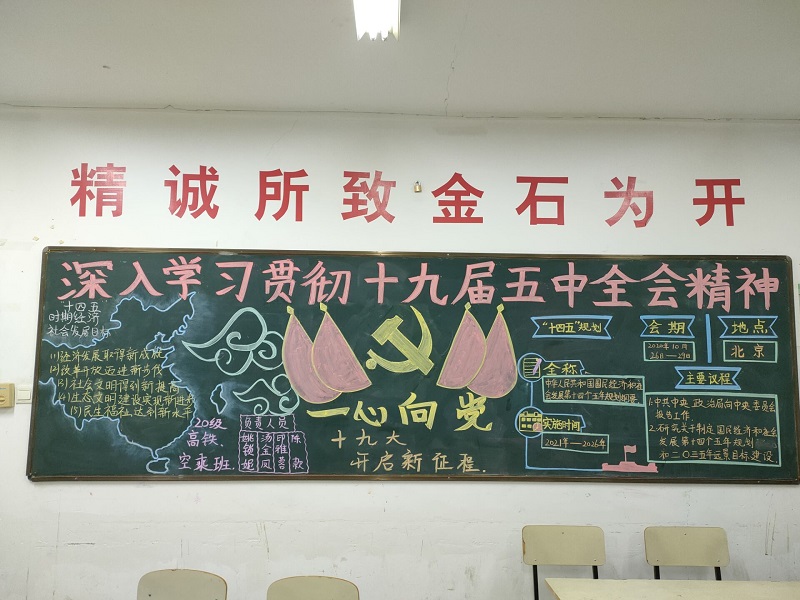 精诚所致金石为开
深入学习贯彻十九届五中全会精神
十四五
时期经济
社会发展目标
(1)经济发展取得新成效
(2)改革开放迈进新步伐
(3)社会文明得到新提高
(4)生态文明建设实现新进步
(5)民生福祉达到新水平
20级
高铁、
空乘班.
负责人员
姚锁妮
汤金凤
印雅
陈
一心向党
十九大
开启新征程.
"十四五"规划
全称
中华人民共和国国民经济和社
会发展第十四个五年规划纲要
实施时间
2021年—2026年
会期
2020年10月
26日—29日
地点
北京
主要议程
1.中共中央政治局向中央委员会
报告工作
2.研究关于制定国民经济和社会
发展第十四个五年规划
和二〇三五年远景目标建设